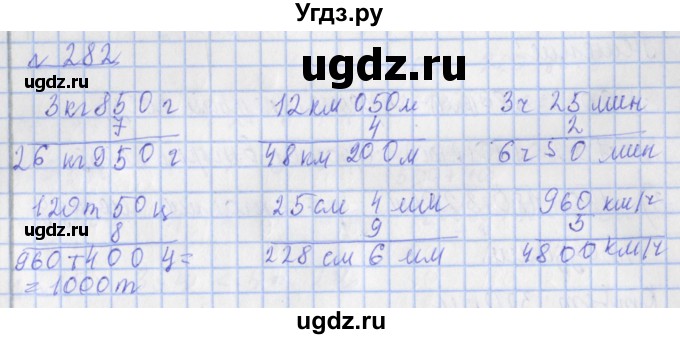 Угдз.ру
N 282
гдз.ru
гдз.ru
3 кг 850 г 12 км 050 м 3 ч 25 мин
7 4 2
26 кг 950 г 48 км 200 м 6 ч 50 мин
120 т 50 ц 25 см 4 мм 960 км/ч
гдз.ru
8 9 5
960 т 400 ц = 228 см 6 мм 4800 км/ч
= 1000 т
ugdz.ru ugdz.ru ugdz.ru